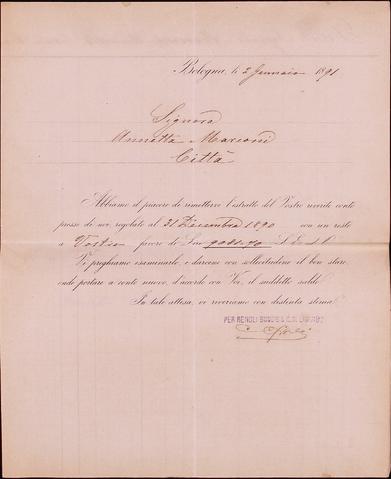 Bologna, li 2 Gennaio 1891
Signora
Annetta Marconi
Città
Abbiamo il piacere di rimettervi l'estratto del Vostro riverito conto
presso di noi regolato al 31 Dicembre 1890 con un resto
a Vostro favore di Lire
Vi preghiamo esaminarlo, e darcene con sollecitudine il ben stare,
onde portare a conto nuovo, d'accordo con Voi, il suddetto saldo.
In tale attesa, vi riveriamo con distinta stima
PER RENOLI